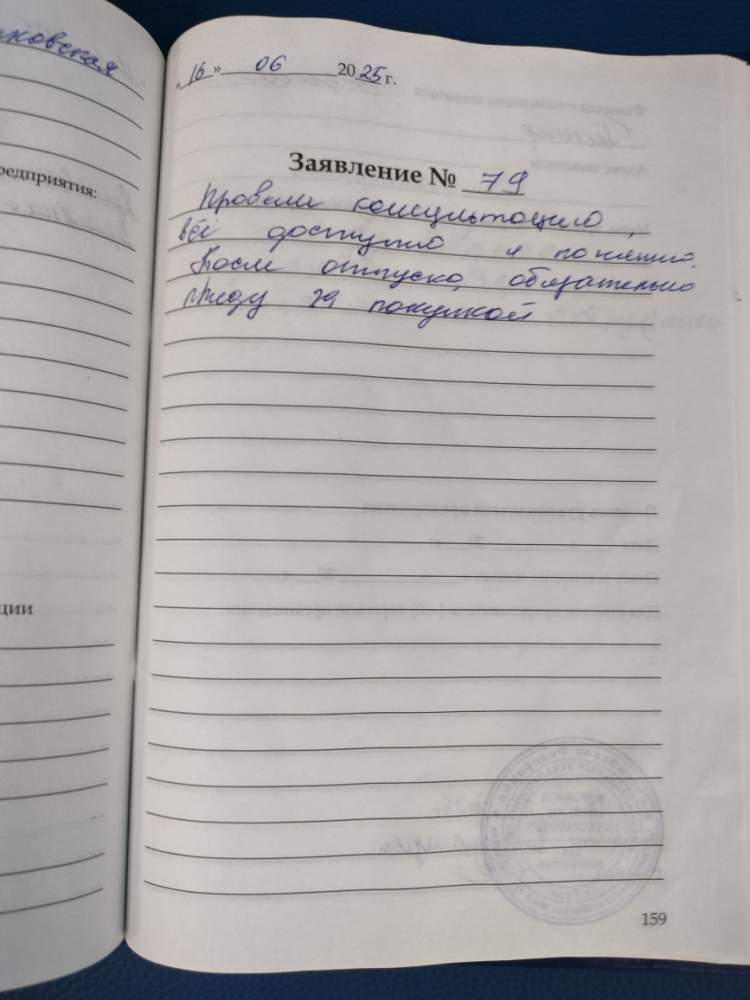 ковская
редприятия:
ции
«16» 06 2025 г.
Заявление № 79
Провели консультацию,
всё доступно и понятно.
После отпуска, обязательно
приду за покупкой
159